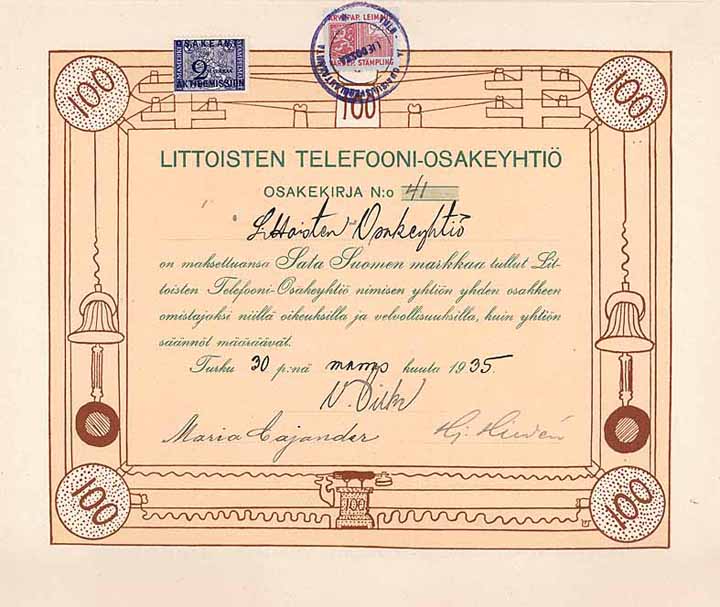 OSAKEANTI
2
AKTIEEMISSION
ARVOPAP. LEIMAUS
STÄMPLING
100
100
100
LITTOISTEN TELEFOONI-OSAKEYHTIÖ
OSAKEKIRJA N:o 41
Littoisten Osakeyhtiö
on maksettuansa Sata Suomen markkaa tullut Lit-
toisten Telefooni-Osakeyhtiö nimisen yhtiön yhden osakkeen
omistajaksi niillä oikeuksilla ja velvollisuuksilla, kuin yhtiön
säännöt määräävät.
Turku 30 p:nä marras kuuta 1935.
Maria Cajander
Hj.
100
100
100